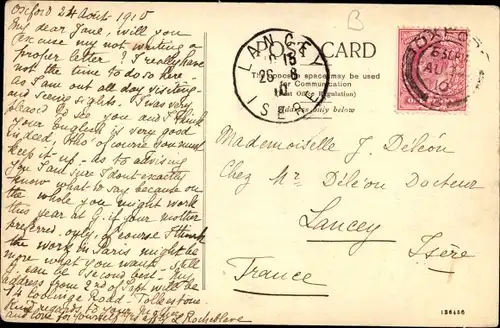 Oxford 24 Août 1910
My dear Jane, will you
excuse my not writing a
proper letter? I really have
not the time to do so here
as I am out all day visiting
and seeing sights. I was very
pleased to see you and I think
your English is very good
indeed, tho' of course you must
keep it up. As to advising
you I am sure I don't exactly
know what to say because on
the whole you might work
this year at G. if your mother
preferred. only, of course I think
the work in Paris might be
more what you want. Still
G. can be second best. My
address from 3rd of Sept will be
Road - Folkestone
Kind regards to your
and love for yourself
L Rocheblave
B
POST CARD
The space may be used
for Communication
(Post Office Regulation)
Address only below
LANCEY
26 8
10
ISERE
OXFORD
AU
10
Mademoiselle J. Déléon
Chez Mr Déléon Docteur
Lancey
Isère
France
126456